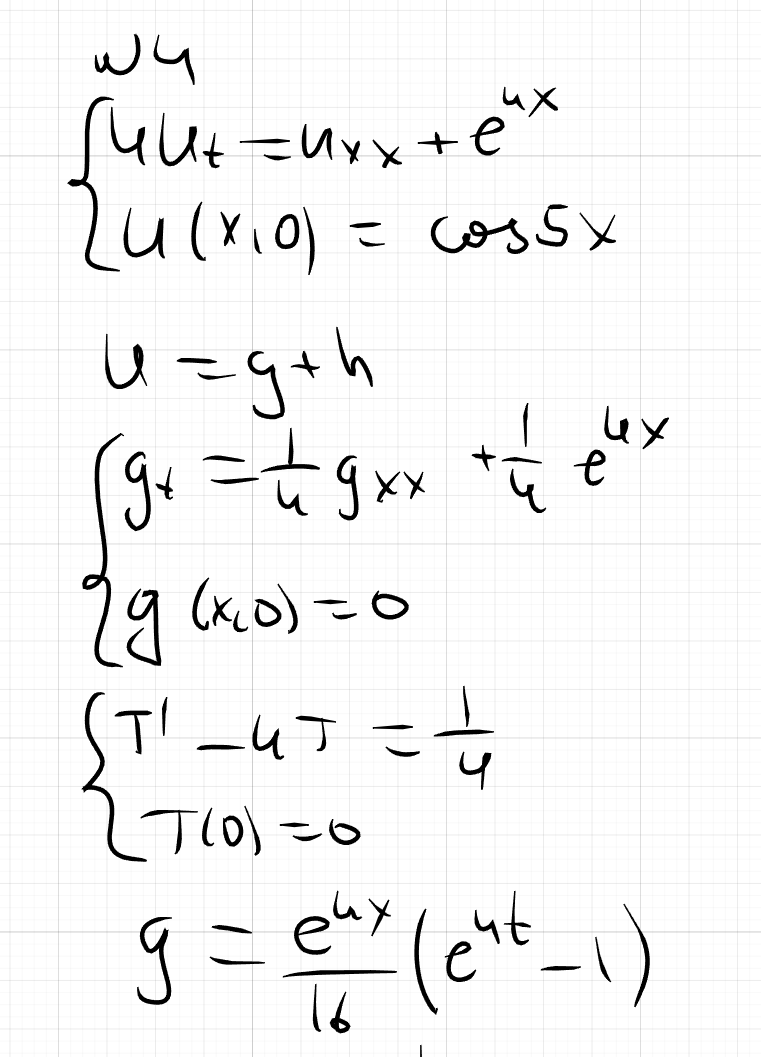 №4
4u_t = u_xx + e^{4x}
u(x,0) = cos5x
u = g + h
g_t = 1/4 g_xx + 1/4 e^{4x}
g(x,0) = 0
T' - 4T = 1/4
T(0) = 0
g = e^{4x}/16 (e^{4t} - 1)